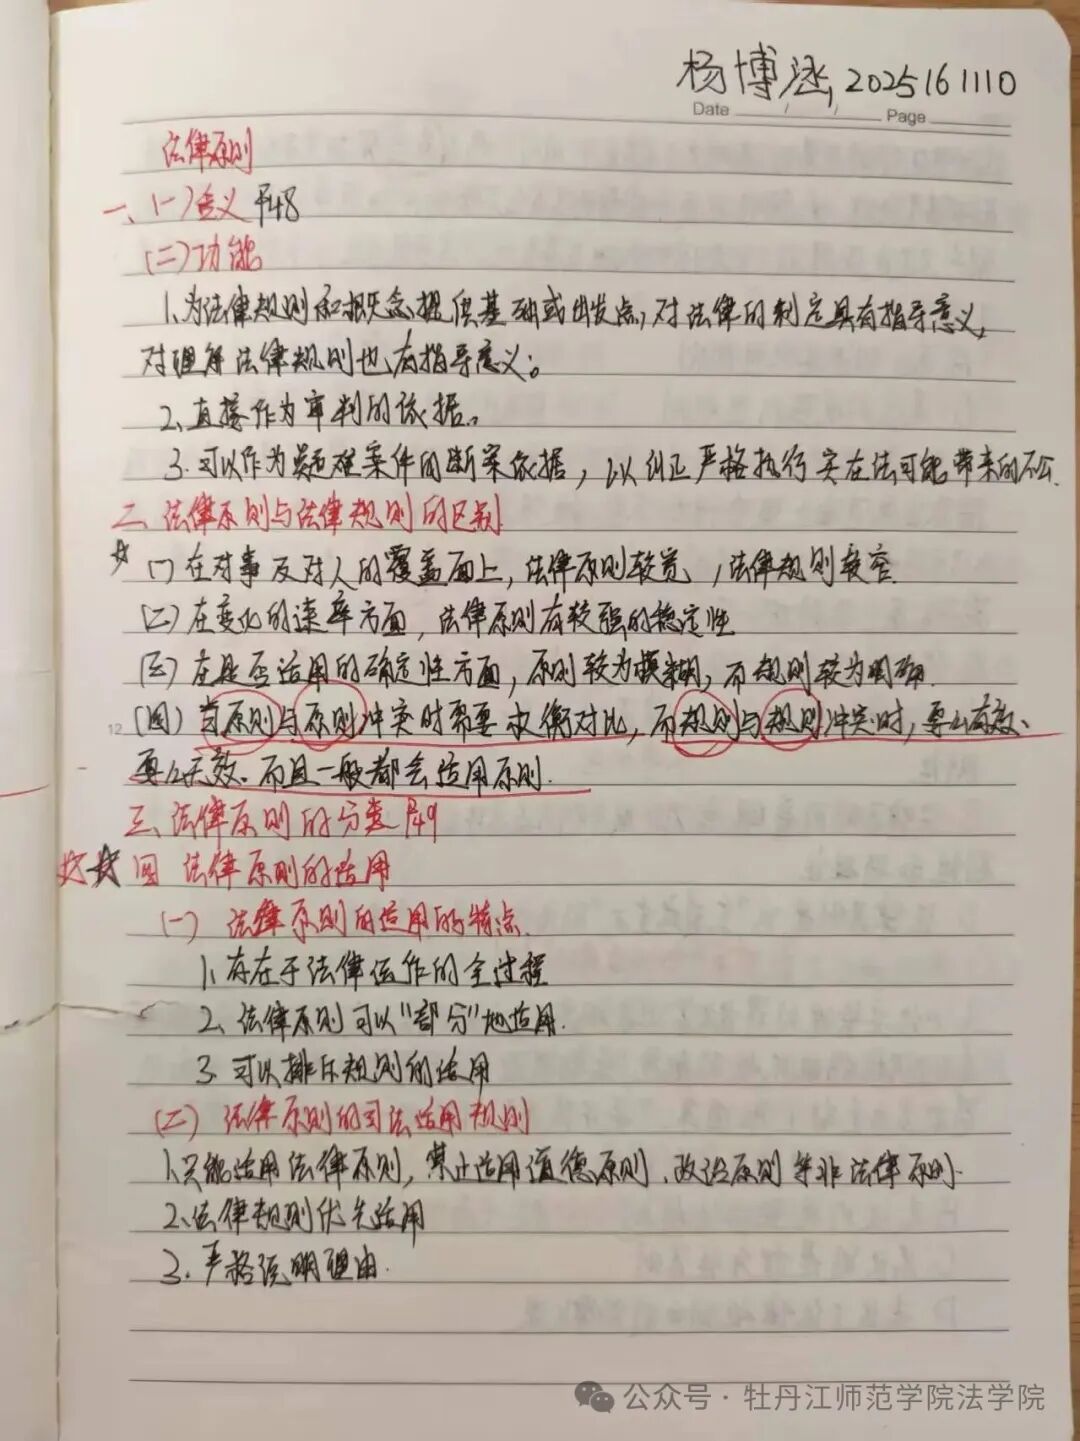 杨博涵, 2025161110
Date / / Page
法律原则
一、(一)含义 P48
(二)功能
1.为法律规则和概念提供基础或出发点,对法律的制定具有指导意义,
对理解法律规则也有指导意义;
2、直接作为审判的依据。
3.可以作为疑难案件的断案依据,以纠正严格执行实在法可能带来的不公.
二、法律原则与法律规则的区别
☆ (一)在对事及对人的覆盖面上,法律原则较宽,法律规则较窄
(二)在变化的速率方面,法律原则有较强的稳定性
(三)在是否适用的确定性方面,原则较为模糊,而规则较为明确.
12 (四)当原则与原则冲突时需要权衡对比,而规则与规则冲突时,要么有效、
要么无效、而且一般都会适用原则.
三、法律原则的分类 P49
☆☆ 四 法律原则的适用
(一) 法律原则的适用的特点.
1.存在于法律运作的全过程
2、法律原则可以"部分"地适用.
3.可以排斥规则的适用
(二) 法律原则的司法适用规则
1.只能适用法律原则,禁止适用道德原则、政治原则等非法律原则.
2、法律规则优先适用
3.严格说明理由.
公众号·牡丹江师范学院法学院